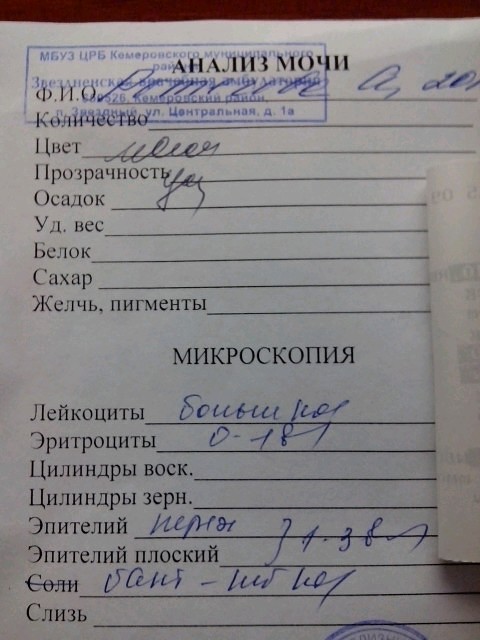 МБУЗ ЦРБ Кемеровского муниципального
района
АНАЛИЗ МОЧИ
Звездненская врачебная амбулатория
Ф.И.О.
650526, Кемеровский район,
п. Звездный, ул. Центральная, д. 1а
Количество
Цвет
Прозрачность
Осадок
Уд. вес
Белок
Сахар
Желчь, пигменты
МИКРОСКОПИЯ
Лейкоциты больш кол
Эритроциты 0-1 в/
Цилиндры воск.
Цилиндры зерн.
Эпителий
Эпителий плоский 1-3 в
Соли бакт - кол
Слизь